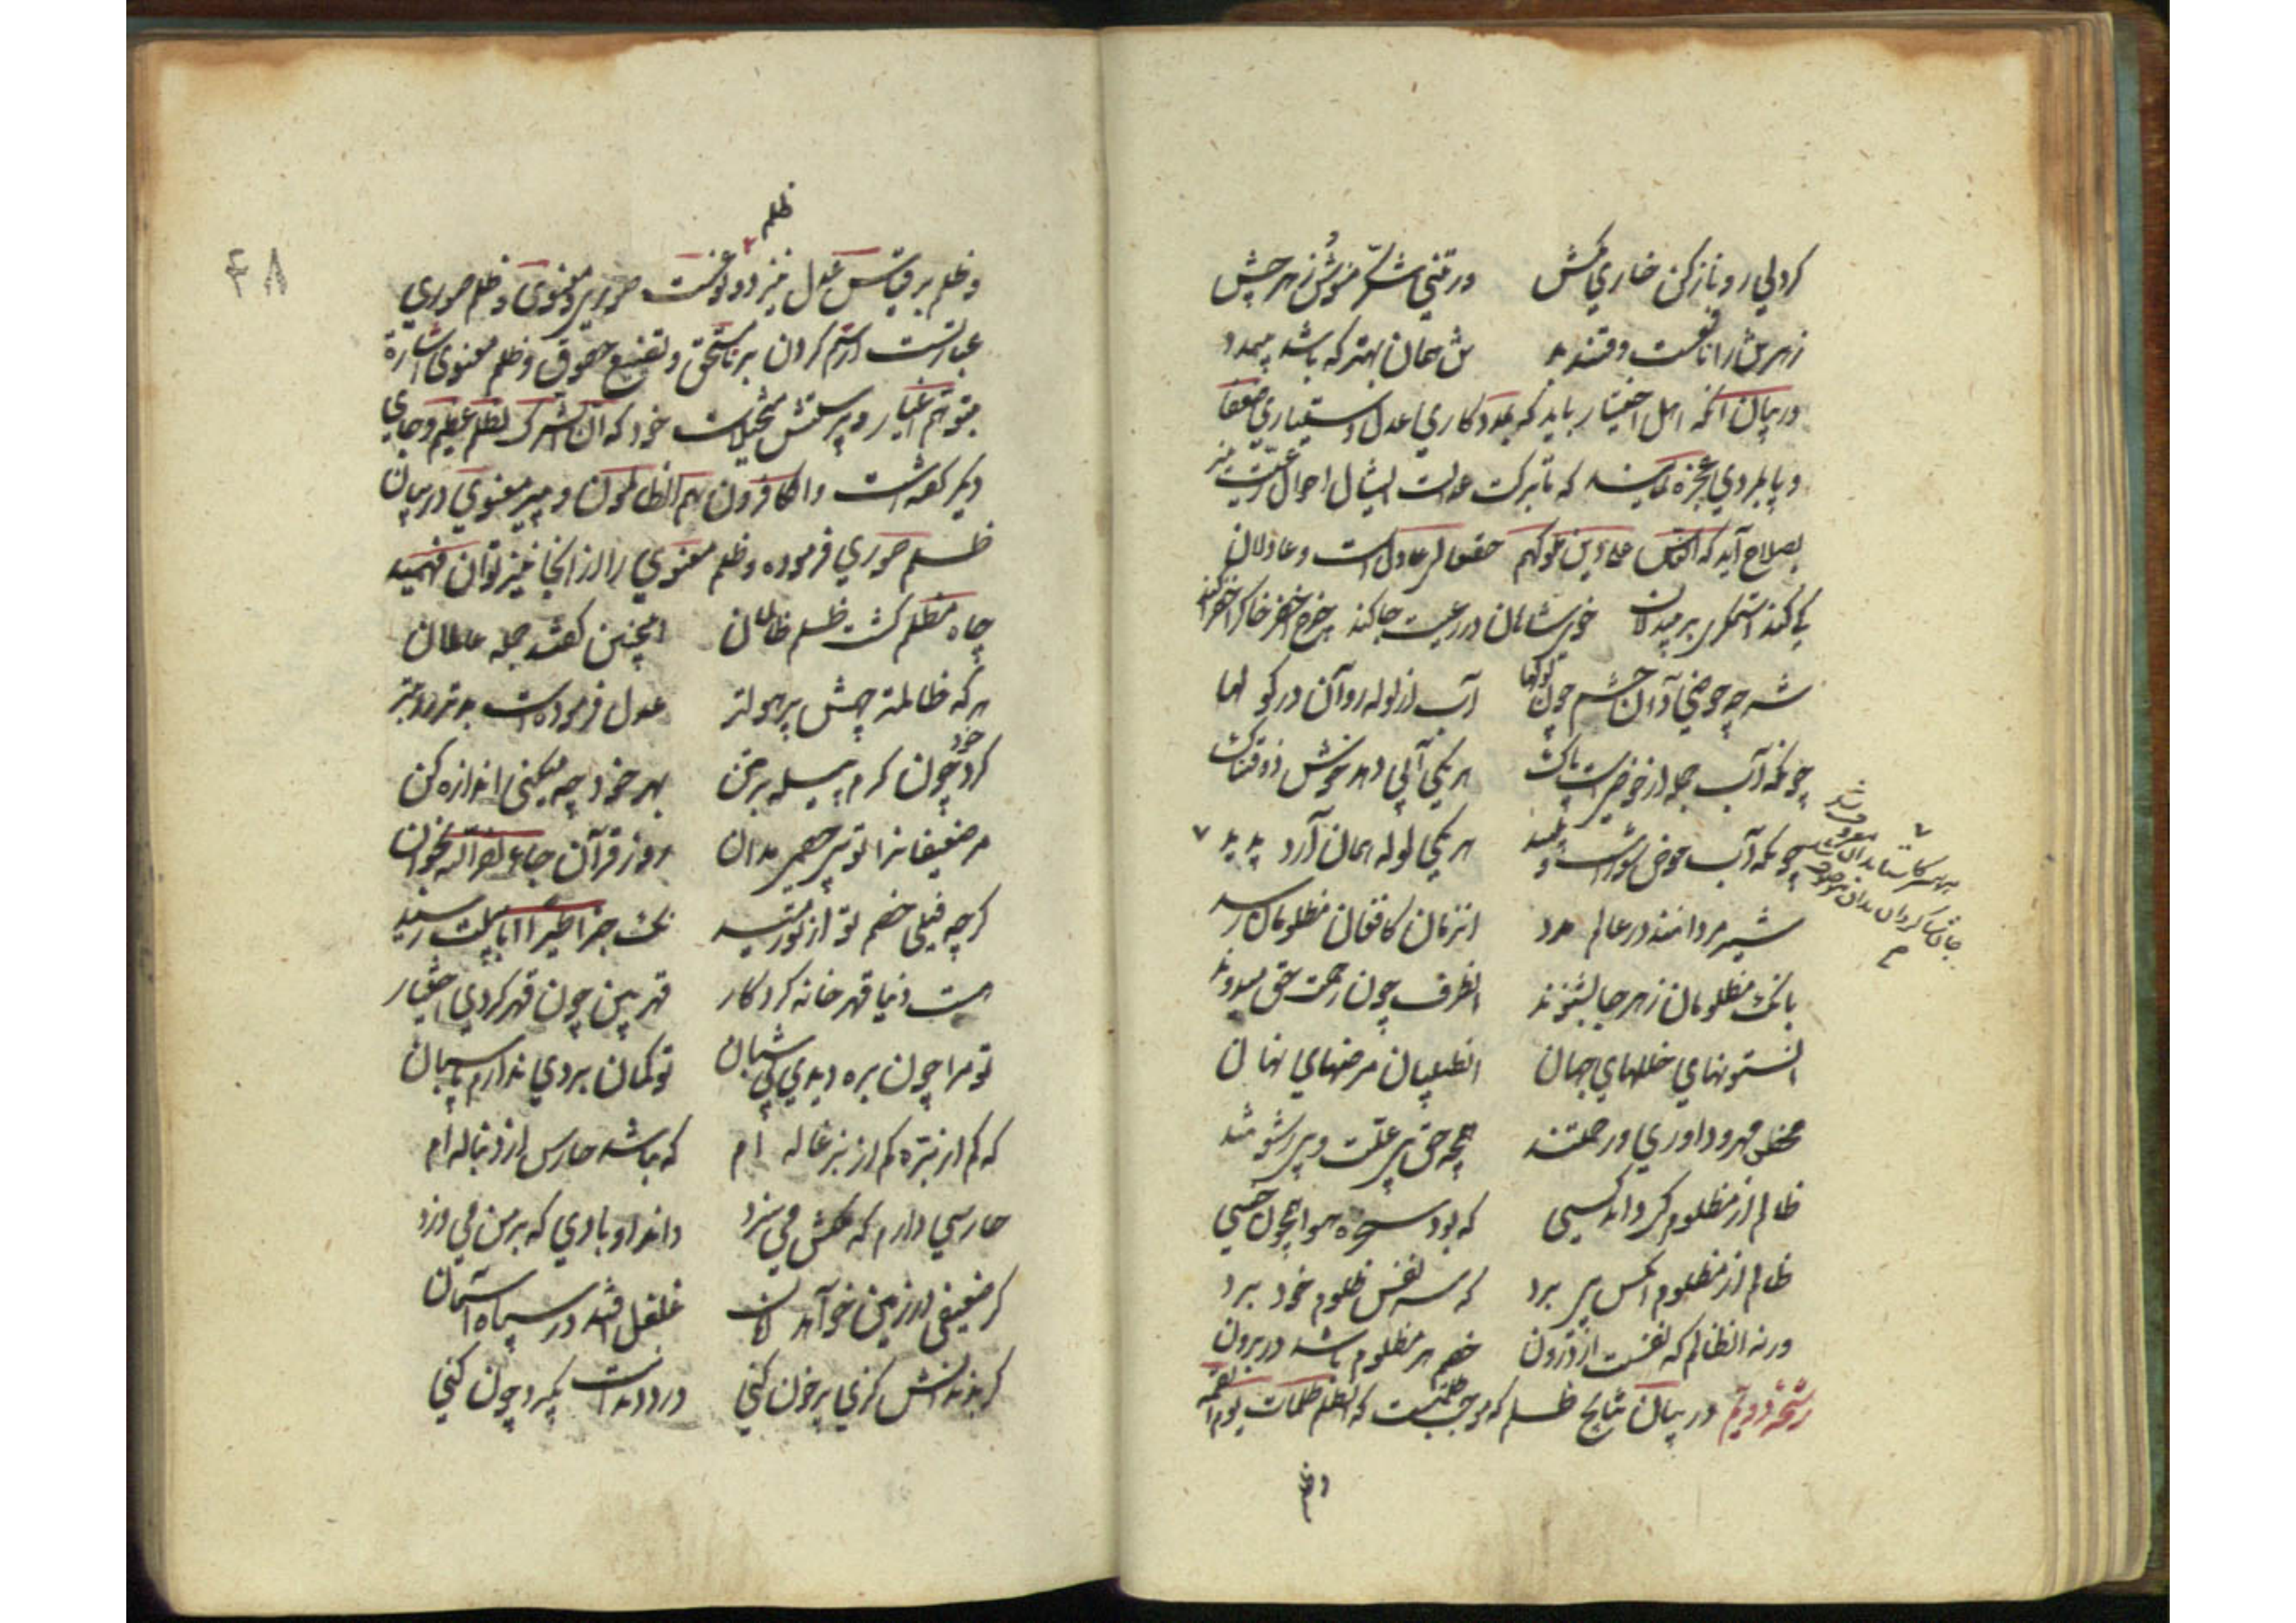 کردلی رو نازکن خاری مکش ور تنی شکر منوش زهر چش
زهر تن را نافعست و قند بد تن همان بهتر که باشد بی مدد
در بیان آنکه اهل اختیار باید که بمددکاری عدل دستیاری ضعفا
و پایمردی عجزه نمایند که تا ببرکت عدالت ایشان احوال رعیت نیز
بصلاح آید که الناس علی دین ملوکهم حقتعالی عادل است و عادلان
کی کنند استمگری بر بیدلان خوی شاهان در رعیت جا کند چرخ اخضر خاک را خضرا کند
شه چو حوضی دان حشم چون لولها آب از لوله روان در کولها
چونکه آب جمله از حوضیست پاک هر یکی آبی دهد خوش ذوقناک
چونکه آب حوض شورست و پلید هر یکی لوله همان آرد پدید
شیر مردانند در عالم مدد آنزمان کافغان مظلومان رسد
بانگ مظلومان ز هر جا بشنوند آنطرف چون رحمت حق میدوند
آن ستونهای خللهای جهان آن طبیبان مرضهای نهان
محض مهر و داوری و رحمتند همچو حق بی علت و بی رشوتند
ظالم از مظلوم کی داند کسی که بود سخره هوا همچون خسی
ظالم از مظلوم آنکس پی برد که سر نفس ظلوم خود برد
ورنه آن ظالم که نفست از درون خصم هر مظلوم باشد در برون
رشحه دویم در بیان نتایج ظلم که موجب ظلمتست که الظلم ظلمات یوم القیمه
وظلم
۴۸
ظلم
و ظلم بر قیاس عدل نیز دو نوعست صوری و معنوی و ظلم صوری
عبارتست از ستم کردن بر ناحق و تضییع حقوق و ظلم معنوی اشارة
بتوهم اغیار و پرستش مخیلات خود که ان الشرک لظلم عظیم و جای
دیگر گفته است والکافرون هم الظالمون و پیر معنوی در بیان
ظلم صوری فرموده و ظلم معنوی را از انجا نیز توان فهمید
چاه مظلم گشت ظلم ظالمان اینچنین گفتند جمله عالمان
هر که ظالمتر چهش پر هولتر عدل فرمودست بدتر را بتر
گرد خود چون کرم پیله بر متن بهر خود چه میکنی اندازه کن
مر ضعیفانرا تو بی خصمی مدان از قرآن جاء نصر الله بخوان
گرچه فیلی خصم تو از تو رمید نک جزا طیرا ابابیلت رسید
هست دنیا قهرخانه کردگار قهر بین چون قهر کردی اختیار
تو مرا چون بره دیدی بی شبان تو گمان بردی ندارم پاسبان
که کم از بره کم از بزغاله ام که باشد حارس از دنباله ام
حارسی دارم که ملکش می سزد داند او بادی که بر من می وزد
گر ضعیفی در زمین خواهد امان غلغل افتد در سپاه آسمان
گر بدندانش گزی پر خون کنی درد دندانت بگیرد چون کنی